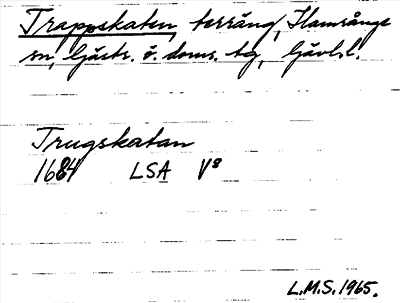 Trappskaten, terräng, Hamrånge
sn, Gästr. ö. doms. tg, Gävl. l.
Trugskatan
1684 LSA V8
L.M.S. 1965.